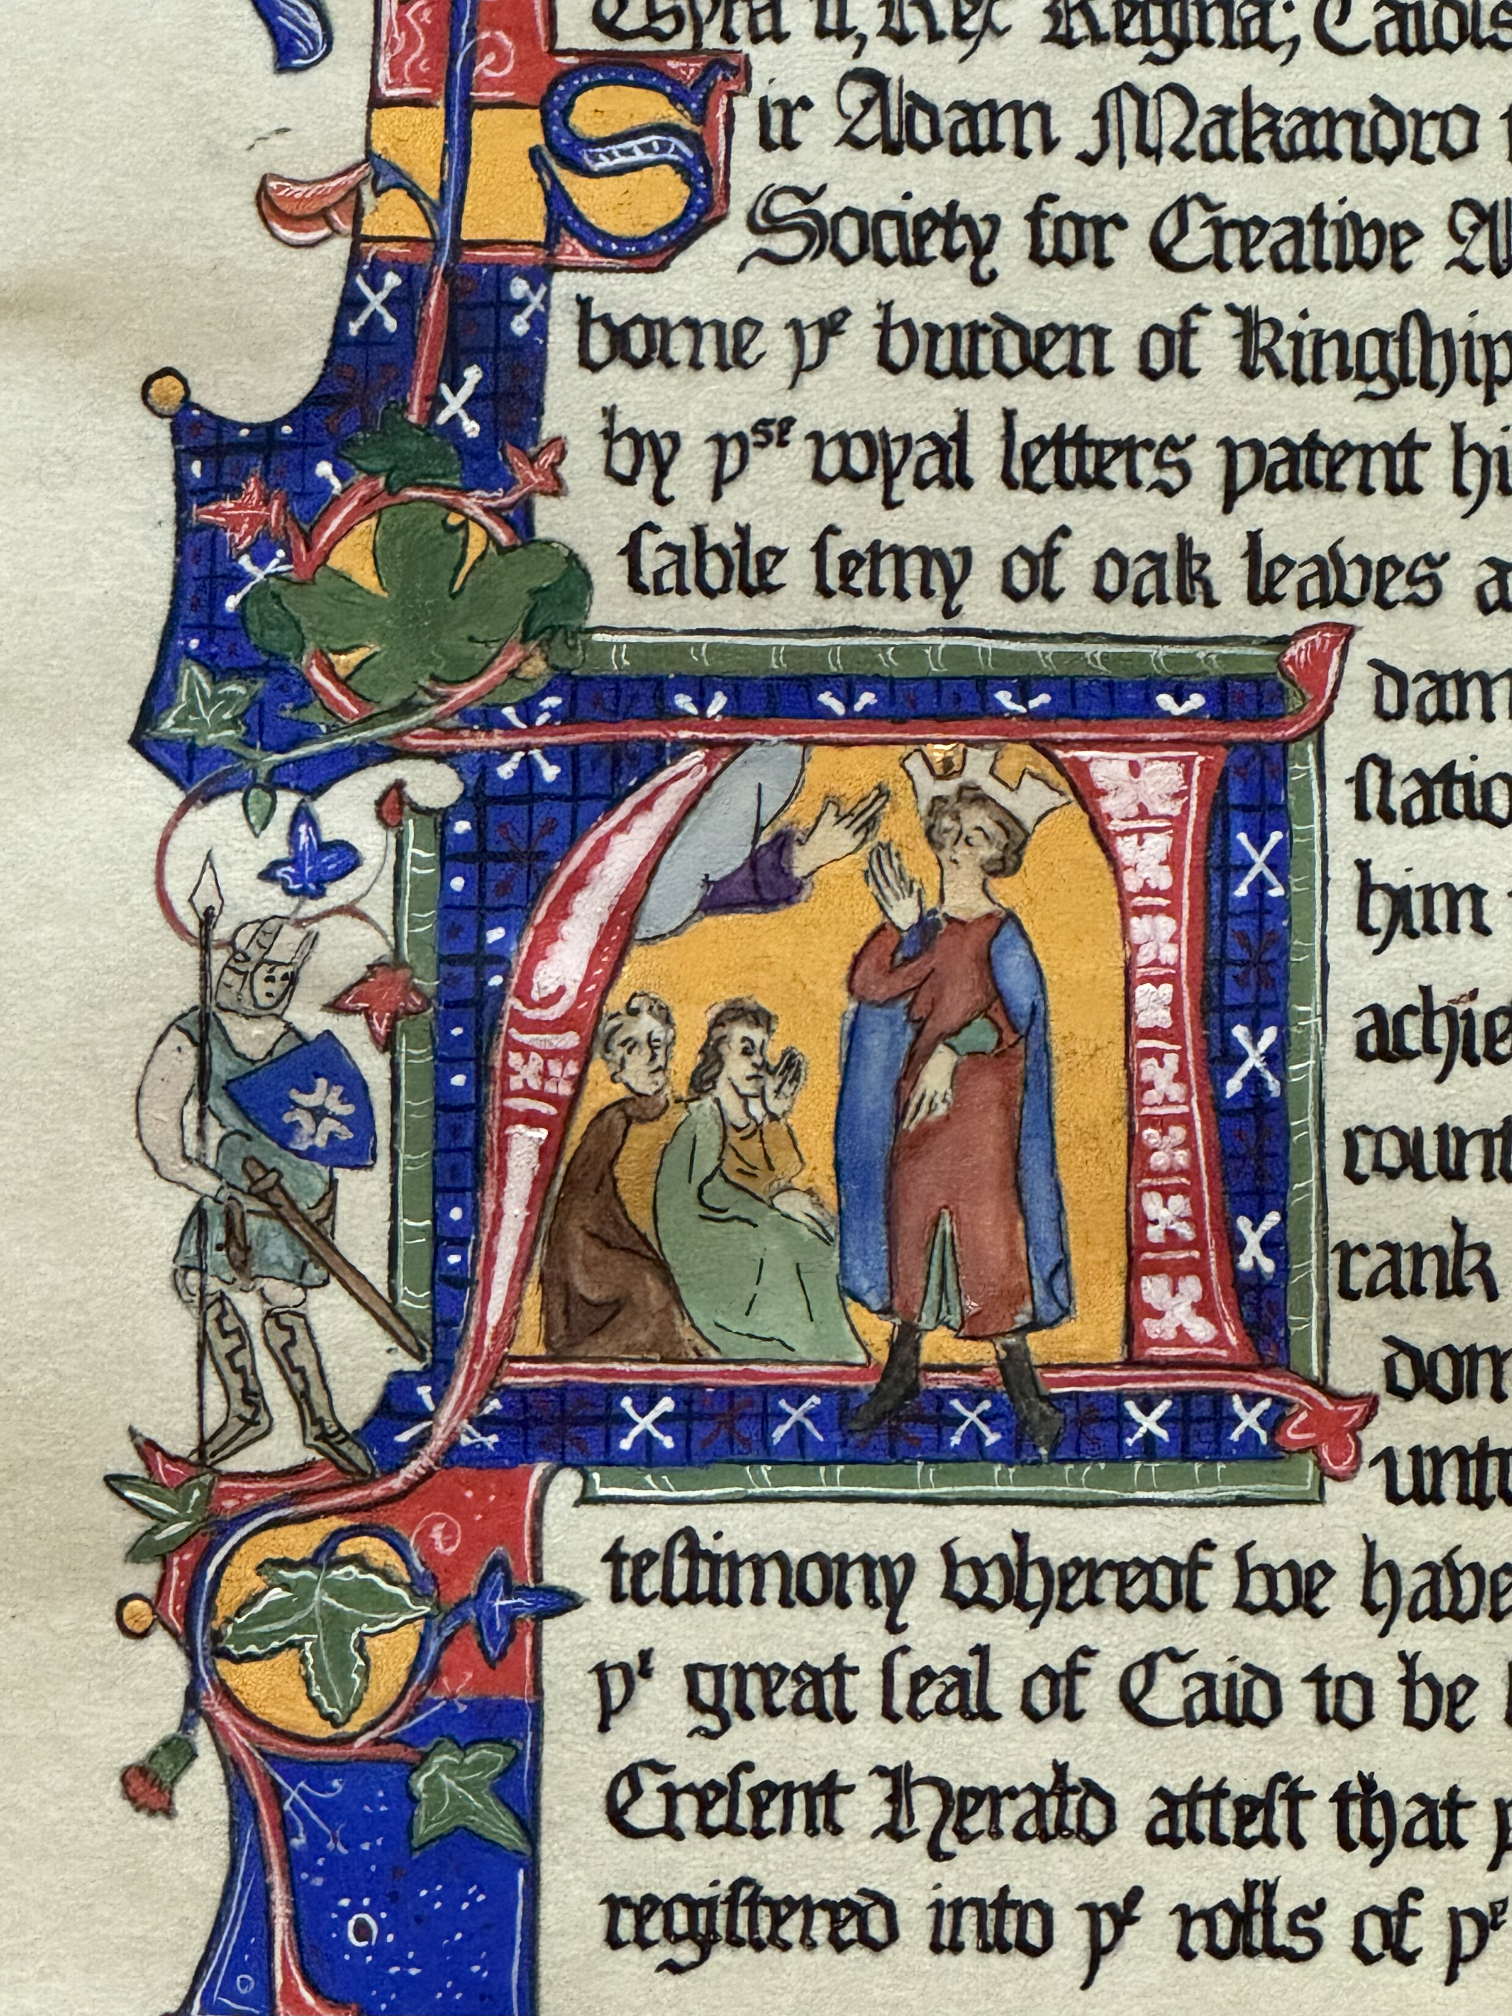 Rex Regina; Caidis
Sir Adam Makandro
Society for Creative A
borne yᵉ burden of Kingship
by yˢᵉ royal letters patent hi
sable semy of oak leaves a
Adam
statio
him
achie
count
rank
dom
unto
testimony whereof we have
yᵉ great seal of Caid to be
Cresent Herald attest that
registered into yᵉ rolls of yᵉ